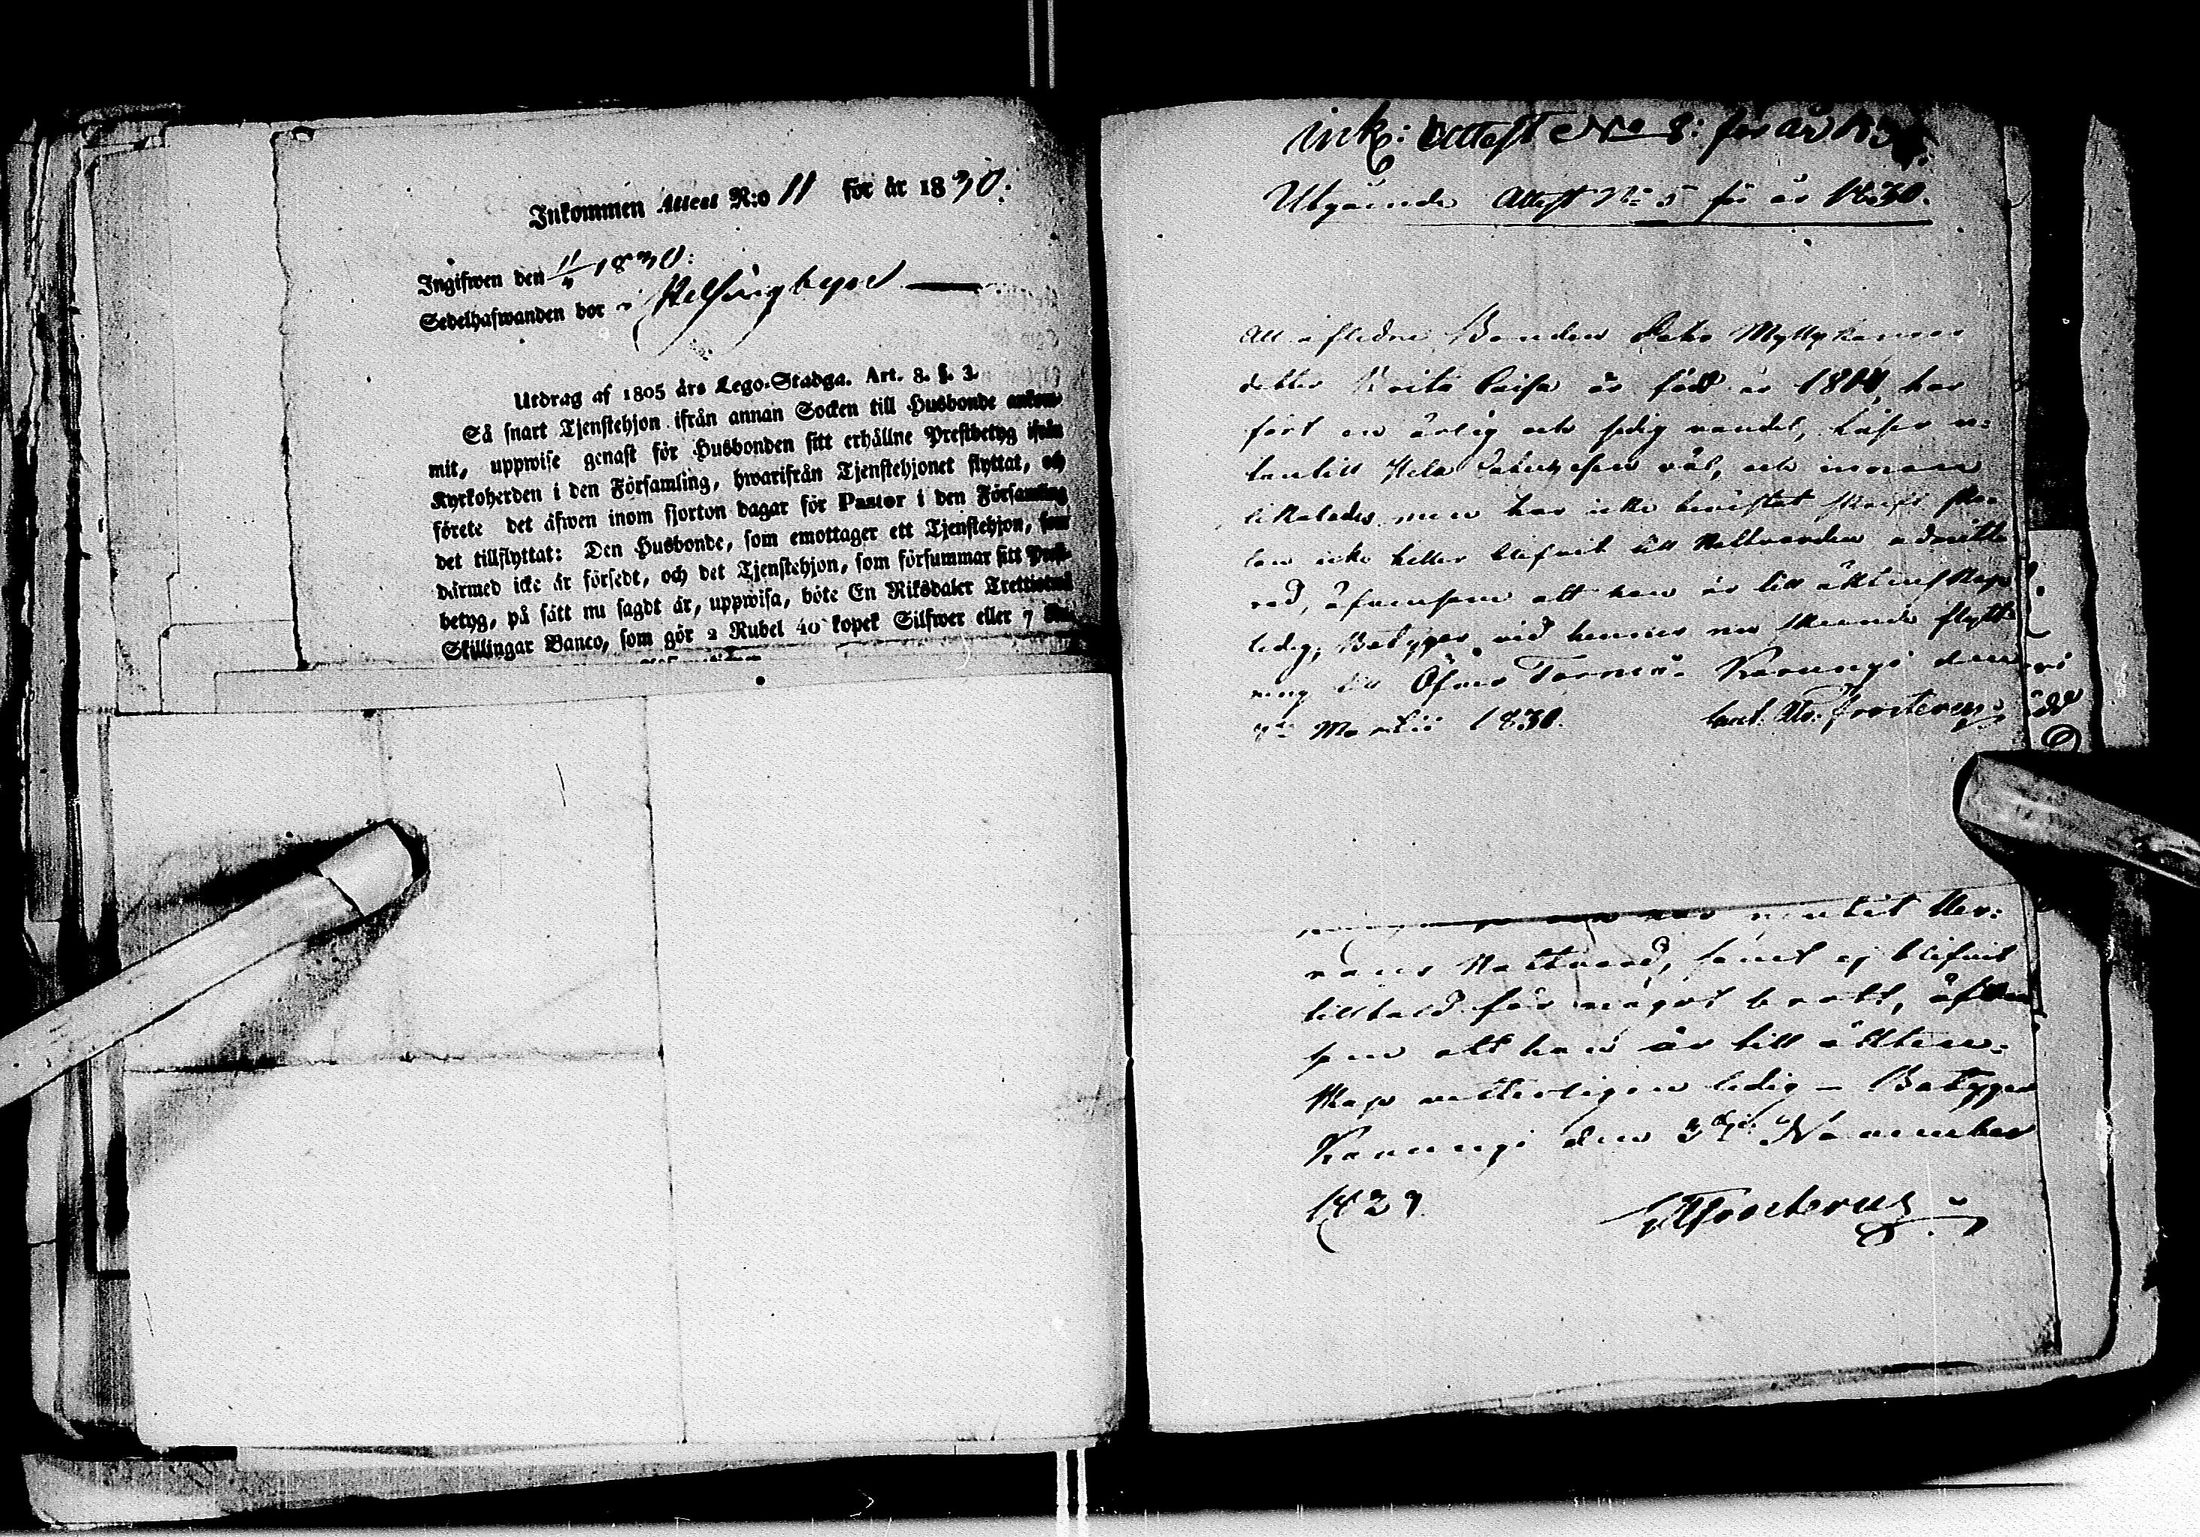 Inkommen Attest N:o 11 för år 1830.
Ingifwen den 11/4 1830:
Sedelhafwanden bor i Helsingbyn
Utdrag af 1805 års Lego-Stadga. Art. 8. §. 3.
Så snart Tjenstehjon ifrån annan Socken till Husbonde ankom-
mit, uppwise genast för Husbonden sitt erhållne Prestbetyg ifrån
Kyrkoherden i den Församling, hwarifrån Tjenstehjonet flyttat, och
förete det äfwen inom fjorton dagar för Pastor i den Församling
det tillflyttat: Den Husbonde, som emottager ett Tjenstehjon, som
därmed icke är försedt, och det Tjenstehjon, som försummar sitt Prest-
betyg, på sätt nu sagdt är, uppwisa, böte En Riksdaler Trettiotwå
Skillingar Banco, som gör 2 Rubel 40 kopek Silfwer eller 7
ink: Attest No 8: för år
Utgående Attest No 5 för år 1830.
Att aflidne Bonden
dotter Brita Caisa är född år 1811, har
fört en ärlig och sedig vandel, läser u-
tantill Hela Catechesen väl, och innan
likaledes, men har icke bevistat Skrift
icke heller blifvit till Nattvarden admitte-
rad, äfvensom att hon är till äktenskap
ledig, Betygar vid hennes nu skeende flytt-
ning till Öfver Torneå. Karungi den
Martii 1830. Frosterus
niutit Her-
rans Nattvard, samt ej blifvit
tilltald för något brott, äfven
som att han är till äkten-
skap ledig – Betygar
Karungi den November
1829. Frosterus